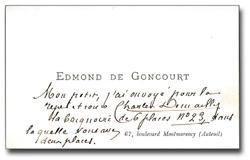 EDMOND DE GONCOURT
Mon petit, j'ai envoyé pour la
répétition à Charles Demailly
la baignoire de 6 places N° 23, dans
laquelle vous avez
deux places.
67, boulevard Montmorency (Auteuil)